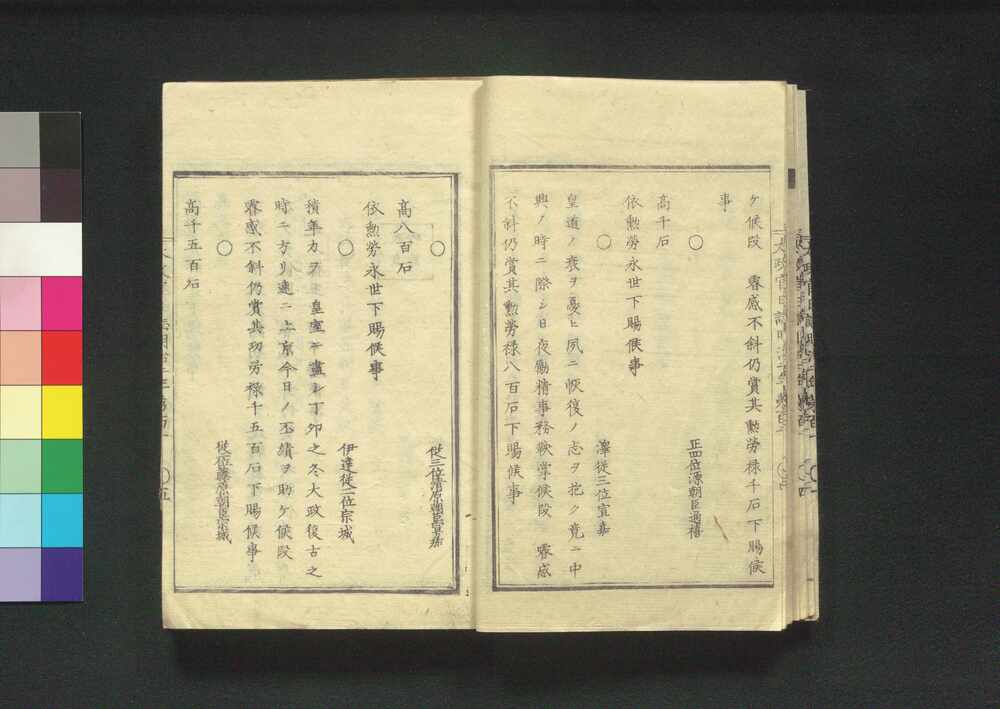 ケ候段　睿感不斜仍賞其勲勞祿千石下賜候
事
○　正四位源朝臣通禧
高千石
依勲勞永世下賜候事
○　澤從三位宣嘉
皇道ノ衰ヲ憂ヒ夙ニ恢復ノ志ヲ抱ク竟ニ中
興ノ時ニ際シ日夜勵精事務鞅掌候段　睿感
不斜仍賞其勲勞祿八百石下賜候事
○　從三位清原朝臣宣嘉
高八百石
依勲勞永世下賜候事
○　伊達從二位宗城
積年力ヲ　皇室ニ盡シ丁卯之冬大政復古之
時ニ方リ速ニ上京今日ノ丕績ヲ助ケ候段
睿感不斜仍賞其功労祿千五百石下賜候事
○　從二位藤原朝臣宗城
高千五百石